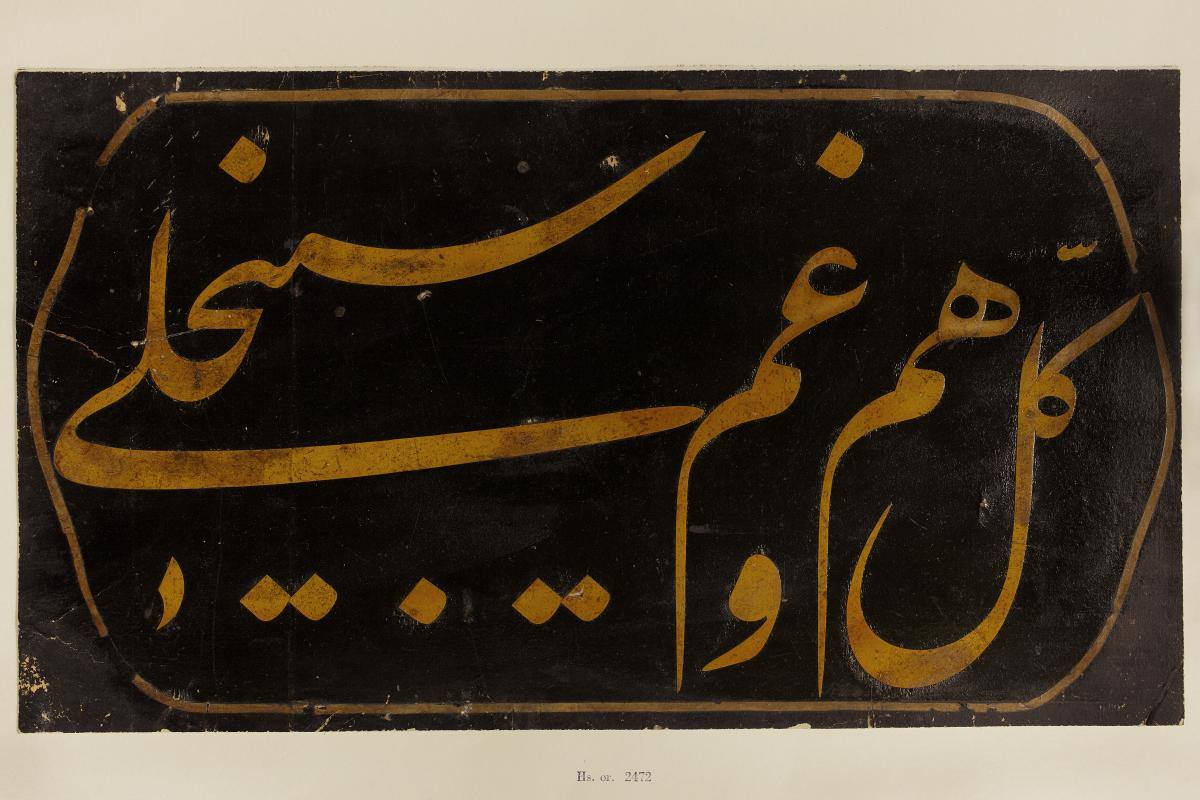 كلّ هم و غم سينجلي
Hs. or. 2472